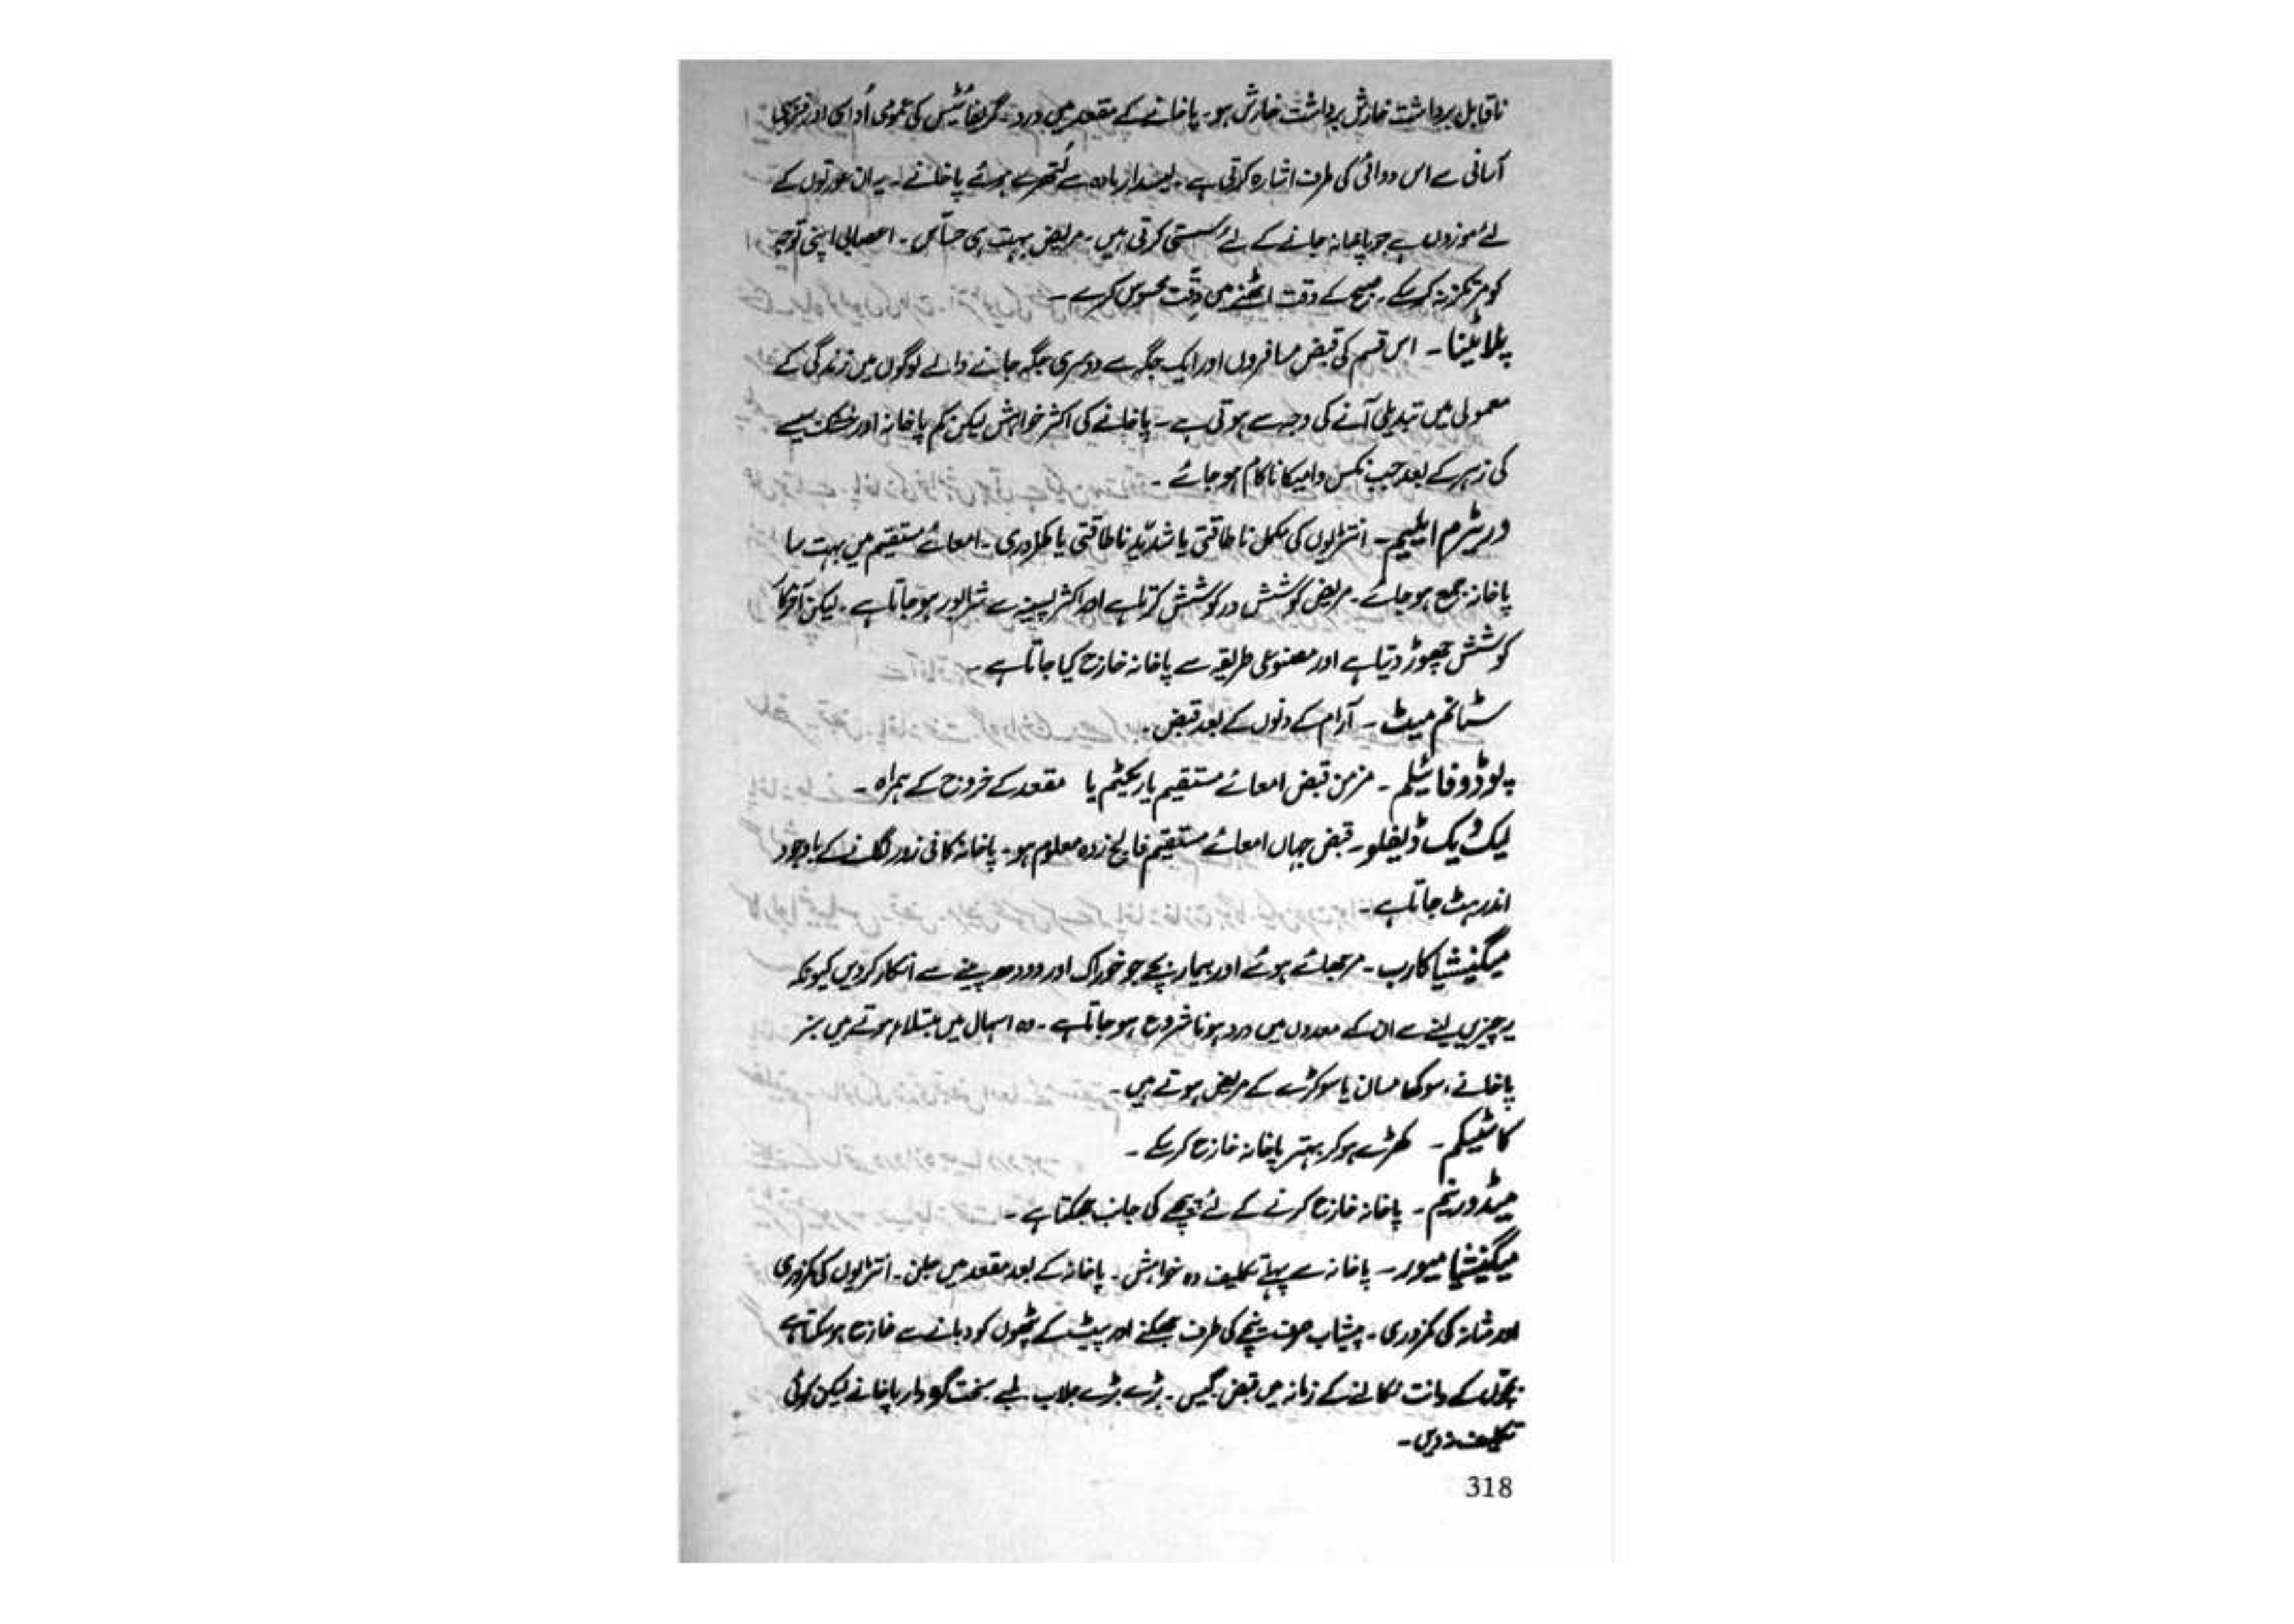 ناقابل برداشت خارش برداشت خارش ہو۔ پاخانے کے مقعد میں درد۔ گریفائیٹس کی عمومی اُداسی اور
آسانی سے اس دوائی کی طرف اشارہ کرتی ہے۔ لیسدار مادہ سے لُتھڑے ہوئے پاخانے۔ یہ ان عورتوں کے
لئے موزوں ہے جو پاخانہ جانے کے لئے سستی کرتی ہیں۔ مریض بہت ہی حسّاس۔ اعصابی اپنی توجہ
کو مرتکز نہ کر سکے۔ صبح کے وقت اٹھنے میں دِقّت محسوس کرے۔
پلاٹینا۔ اس قسم کی قبض مسافروں اور ایک جگہ سے دوسری جگہ جانے والے لوگوں میں زندگی کے
معمولی میں تبدیلی آنے کی وجہ سے ہوتی ہے۔ پاخانے کی اکثر خواہش لیکن کم پاخانہ اور خشک سیسے
کی زہر کے بعد جب نکس وامیکا ناکام ہو جائے۔
ورٹرم ایلبم۔ انتڑیوں کی مکمل ناطاقتی یا شدید ناطاقتی یا کمزوری۔ امعائے مستقیم میں بہت سا
پاخانہ جمع ہو جائے۔ مریض کوشش در کوشش کرتا ہے اور اکثر پسینہ سے شرابور ہو جاتا ہے۔ لیکن آخرکار
کوشش چھوڑ دیتا ہے اور مصنوعی طریقہ سے پاخانہ خارج کیا جاتا ہے۔
سٹانم میٹ۔ آرام کے دنوں کے بعد قبض۔
پوڈوفائیلم۔ مزمن قبض امعائے مستقیم یا ریکٹم یا مقعد کے خروج کے ہمراہ۔
لیک ویک ڈیفلو۔ قبض جہاں امعائے مستقیم فالج زدہ معلوم ہو۔ پاخانہ کافی زور لگانے کے باوجود
اندر ہٹ جاتا ہے۔
میگنیشیا کارب۔ مرجھائے ہوئے اور بیمار بچے جو خوراک اور دودھ پینے سے انکار کر دیں کیونکہ
یہ چیزیں لینے سے ان کے معدوں میں درد ہونا شروع ہو جاتا ہے۔ وہ اسہال میں مبتلا ہوتے ہیں سبز
پاخانے، سوکھا مسان یا سوکڑے کے مریض ہوتے ہیں۔
کاسٹیکم۔ کھڑے ہو کر بہتر پاخانہ خارج کر سکے۔
میڈورینم۔ پاخانہ خارج کرنے کے لئے پیچھے کی جانب جھکتا ہے۔
میگنیشیا میور۔ پاخانہ سے پہلے تکلیف دہ خواہش۔ پاخانہ کے بعد مقعد میں جلن۔ انتڑیوں کی کمزوری
اور مثانہ کی کمزوری۔ پیشاب صرف نیچے کی طرف جھکنے اور پیٹ کے پٹھوں کو دبانے سے خارج ہو سکتا ہے
بچّوں کے دانت نکالنے کے زمانہ میں قبض گیس۔ بڑے بڑے جلاب لے سخت گرہ دار پاخانے لیکن کوئی
تکلیف نہ دیں۔
318